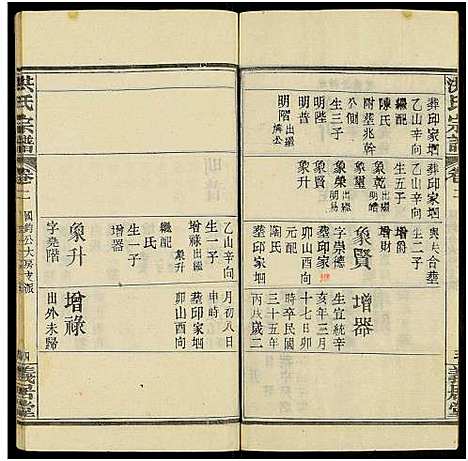 洪氏宗譜
卷十二
義居堂
葬邱家垇
乙山辛向
繼配
陳氏
附塟兆幹
公側
生三子
明普
明階出繼
與夫合塟
生二子
增爵
增財
生五子
象乾出繼
象璽
象榮出繼
象賢
象升
象賢
字崇德
塟邱家垇
卯山酉向
元配
邱氏
塟邱家垇
增器
生宣統辛
亥年三月
十七日卯
時卒民國
三十五年
丙戌歲二
月初八日
塟邱家垇
卯山酉向
乙山辛向
增祿出繼
象升
生一子
繼配
氏
生一子
增器
象升
字堯階
增祿
出外未歸
國鈞公大房支派
洪氏宗譜
卷十二
義居堂